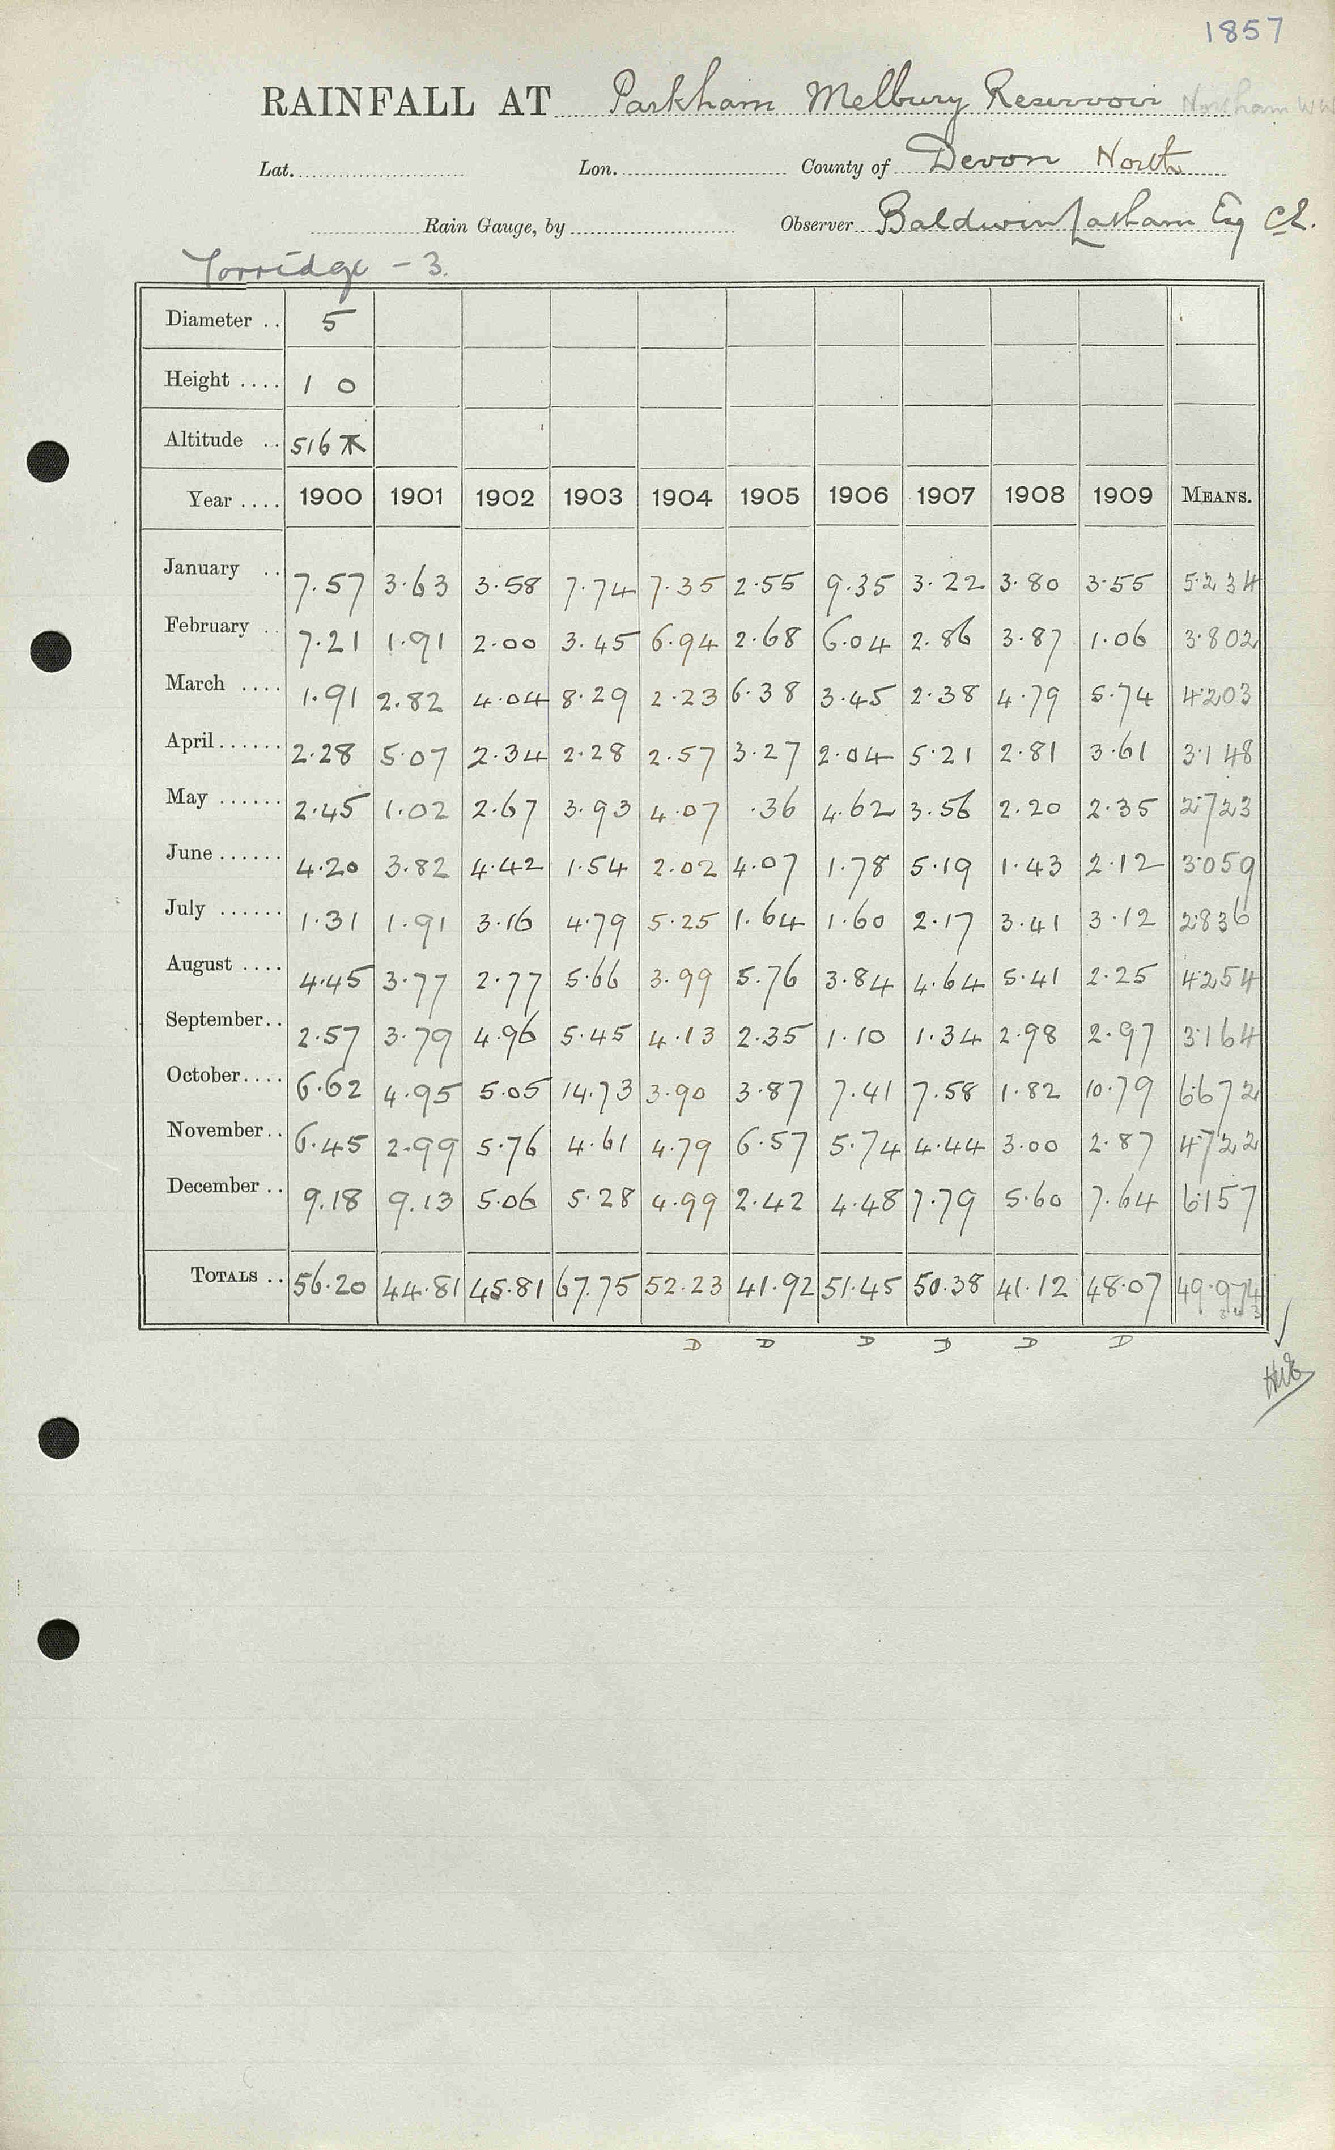 1857
RAINFALL AT Parkham Melbury Reservoir Northam WW
Lat. Lon. County of Devon North
Rain Gauge, by Observer Baldwin Latham Esq C.E.
Torridge - 3.
Diameter .. 5
Height .... 1 0
Altitude .. 516
Year .... 1900 1901 1902 1903 1904 1905 1906 1907 1908 1909 MEANS.
January .. 7.57 3.63 3.58 7.74 7.35 2.55 9.35 3.22 3.80 3.55 5.234
February .. 7.21 1.91 2.00 3.45 6.94 2.68 6.04 2.86 3.87 1.06 3.802
March .... 1.91 2.82 4.04 8.29 2.23 6.38 3.45 2.38 4.79 5.74 4.203
April...... 2.28 5.07 2.34 2.28 2.57 3.27 2.04 5.21 2.81 3.61 3.148
May ...... 2.45 1.02 2.67 3.93 4.07 .36 4.62 3.56 2.20 2.35 2.723
June...... 4.20 3.82 4.42 1.54 2.02 4.07 1.78 5.19 1.43 2.12 3.059
July ...... 1.31 1.91 3.16 4.79 5.25 1.64 1.60 2.17 3.41 3.12 2.836
August .... 4.45 3.77 2.77 5.66 3.99 5.76 3.84 4.64 5.41 2.25 4.254
September.. 2.57 3.79 4.96 5.45 4.13 2.35 1.10 1.34 2.98 2.97 3.164
October.... 6.62 4.95 5.05 14.73 3.90 3.87 7.41 7.58 1.82 10.79 6.672
November.. 6.45 2.99 5.76 4.61 4.79 6.57 5.74 4.44 3.00 2.87 4.722
December .. 9.18 9.13 5.06 5.28 4.99 2.42 4.48 7.79 5.60 7.64 6.157
TOTALS .. 56.20 44.81 45.81 67.75 52.23 41.92 51.45 50.38 41.12 48.07 49.974
D D D D D D